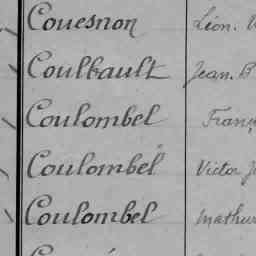 Couesnon Léon.
Coulbault Jean. B
Coulombel
Coulombel Victor J
Coulombel Mathur